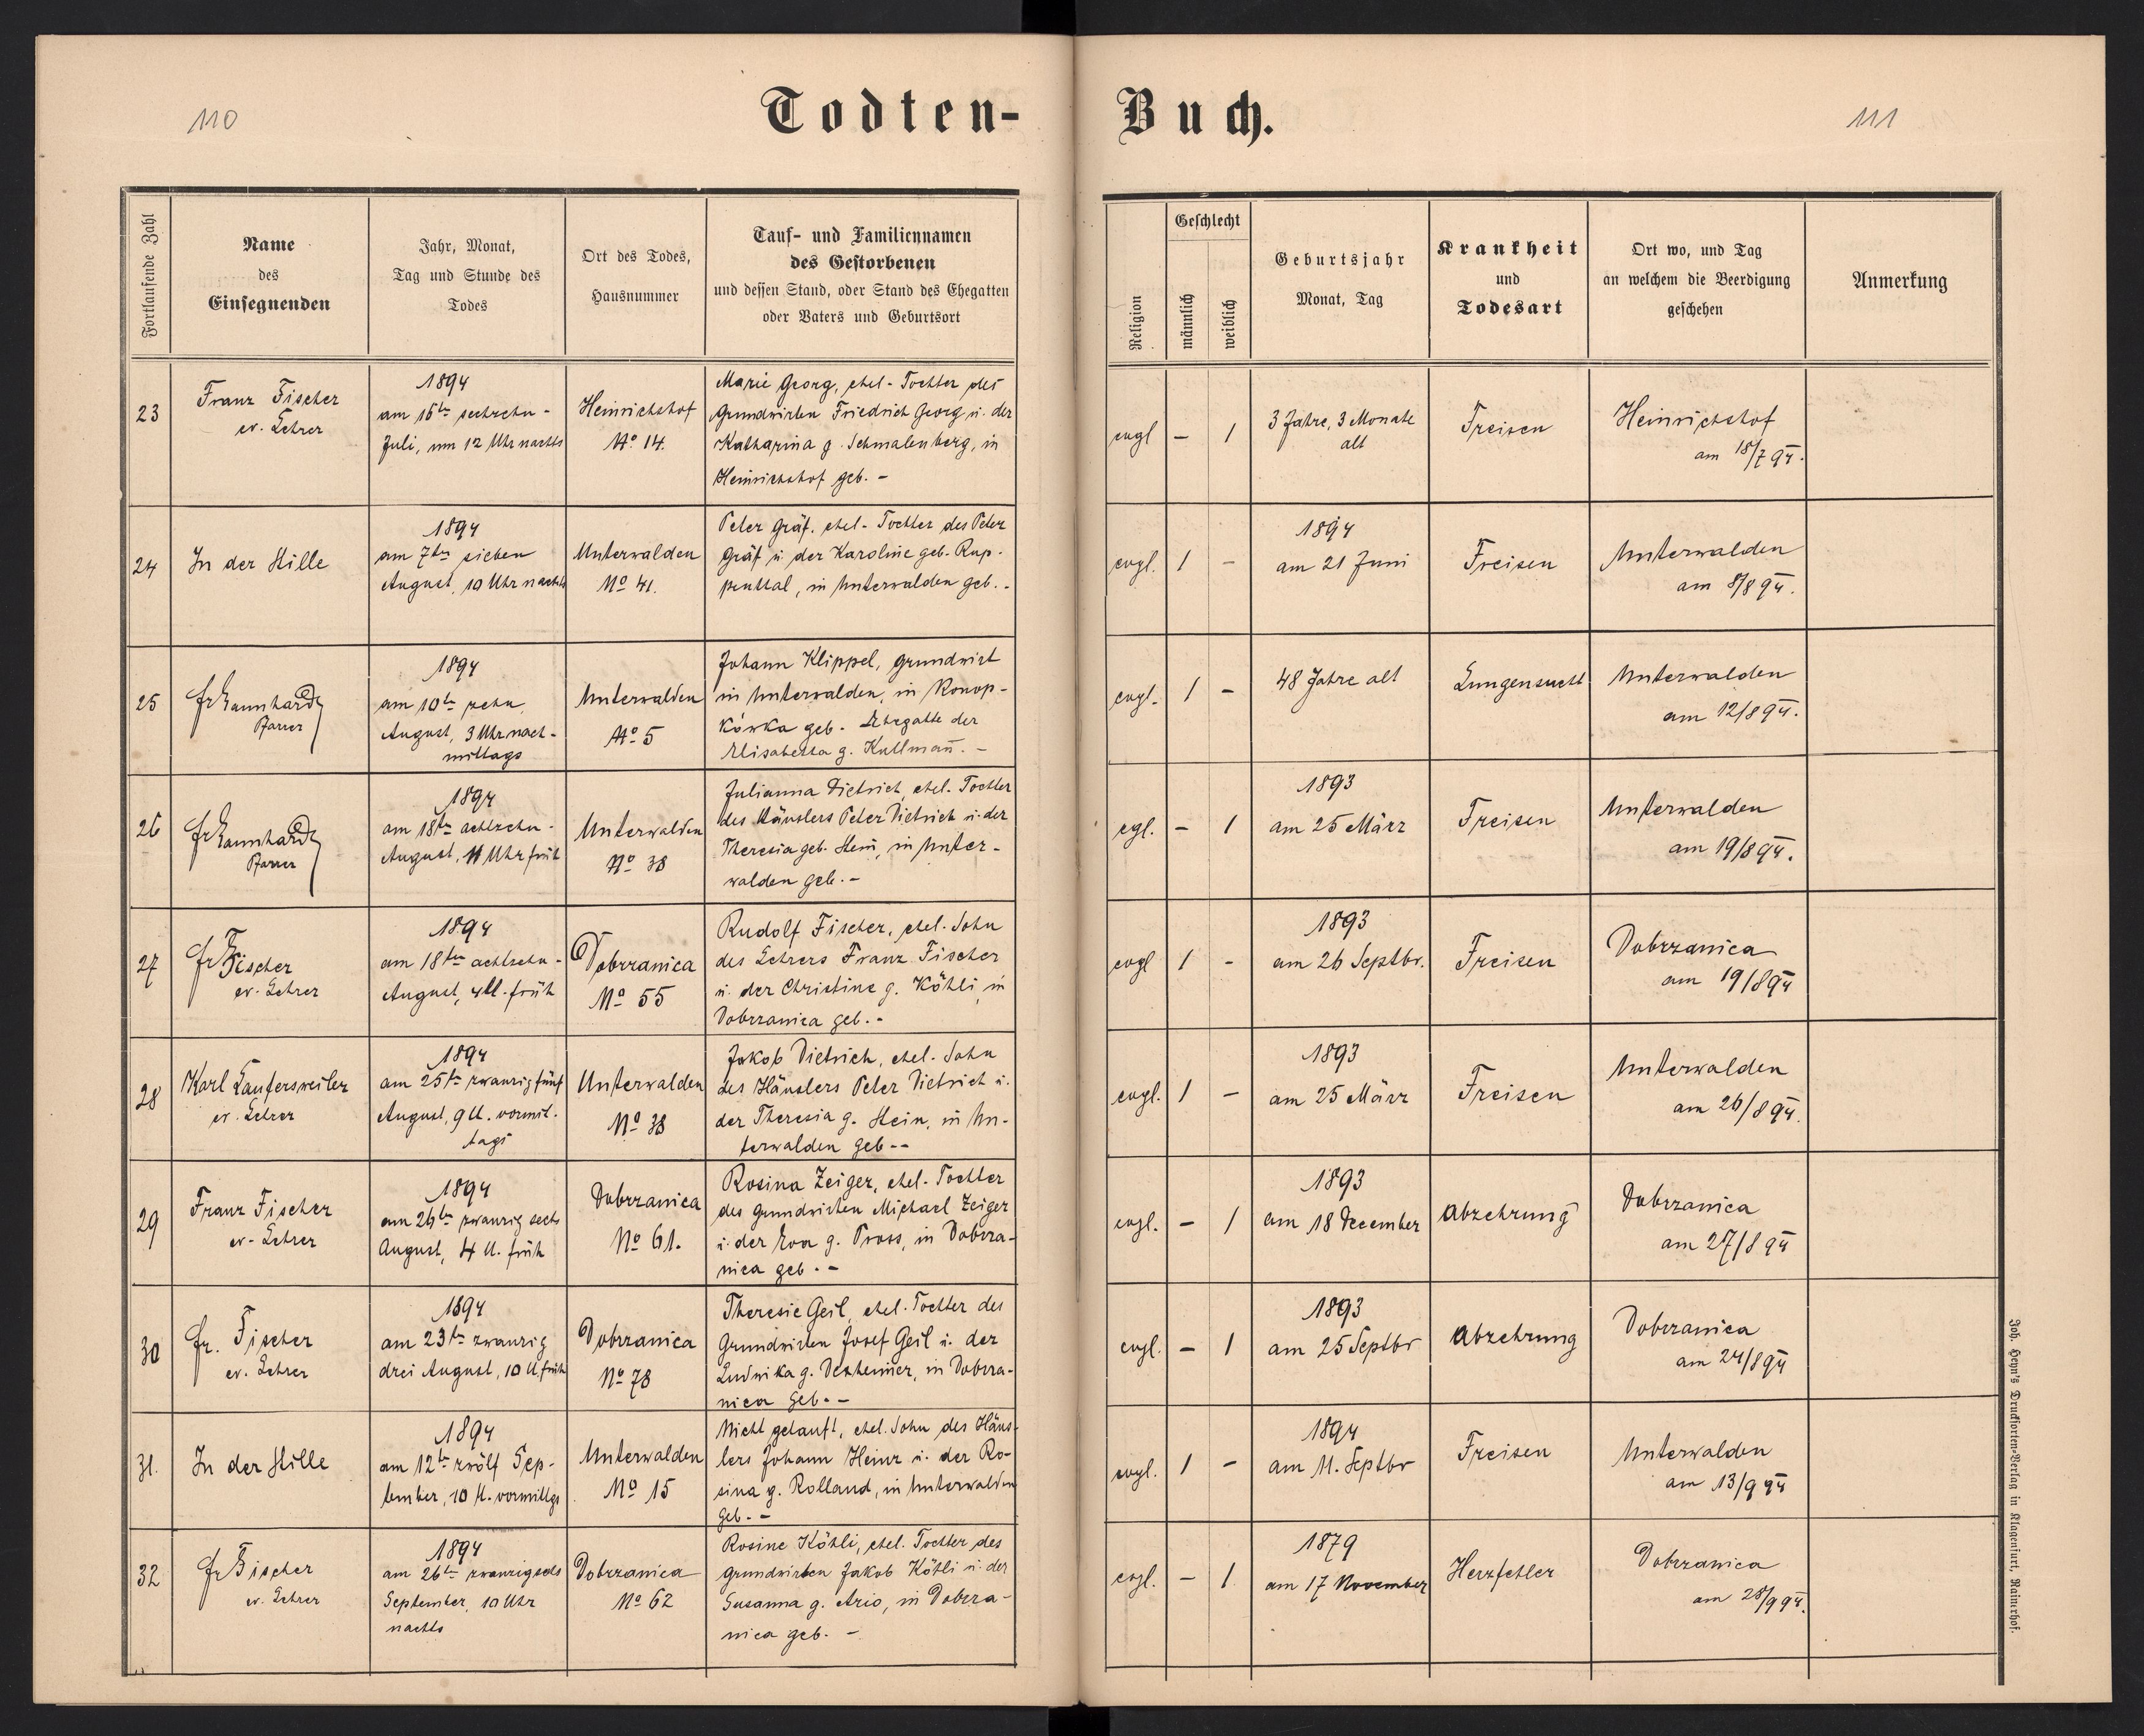 110
Todten-
Buch.
111
Fortlaufende Zahl
Name
des
Einsegnenden
Jahr, Monat,
Tag und Stunde des
Todes
Ort des Todes,
Hausnummer
Tauf- und Familiennamen
des Gestorbenen
und dessen Stand, oder Stand des Ehegatten
oder Vaters und Geburtsort
Religion
Geschlecht
männlich
weiblich
Geburtsjahr
Monat, Tag
Krankheit
und
Todesart
Ort wo, und Tag
an welchem die Beerdigung
geschehen
Anmerkung
23
Franz Fischer
ev. Lehrer
1894
am 16ten sechzehn-
Juli, um 12 Uhr nachts
Heinrichshof
No 14.
Marie Georg, ehel- Tochter des
Grundwirten Friedrich Georg u. der
Katharina g. Schmalenberg, in
Heinrichshof geb. -
evgl - 1
3 Jahre, 3 Monate
alt
Freisen
Heinrichshof
am 18/7 94.
24
In der Stille
1894
am 7ten sieben
August, 10 Uhr nachts
Unterwalden
No 41.
Peter Gräf. ehel- Tochter des Peter
Gräf u der Karoline geb. Rup-
penttal, in Unterwalden geb. -
evgl. 1 -
1894
am 21 Juni
Freisen
Unterwalden
am 8/8 94.
25
Pfarrer
1894
am 10ten zehn
August, 3 Uhr nach-
mittags
Unterwalden
No 5
Johann Klippel, Grundwirt
in Unterwalden, in Konop-
kówka geb. Ehegatte der
Elisabetha g. Kullman̄. -
evgl. 1 -
48 Jahre alt
Lungensucht
Unterwalden
am 12/8 94.
26
Pfarrer
1894
am 18ten achtzehn-
August, 11 Uhr früh
Unterwalden
No 38
Julianna Dietrich, ehel. Tochter
des Häuslers Peter Dietrich u. der
Theresia geb. Hein, in Unter-
walden geb. -
egl. - 1
1893
am 25 März
Freisen
Unterwalden
am 19/8 94.
27
Fr Fischer
ev. Lehrer
1894
am 18ten achtzehn-
August, 4 U. früh
Dobrzanica
No 55
Rudolf Fischer, ehel. Sohn
des Lehrers Franz Fischer
u. der Christine g. Köhli, in
Dobrzanica geb. -
evgl 1 -
1893
am 26 Septbr.
Freisen
Dobrzanica
am 19/8 94
28
Karl Laufersweiler
ev. Lehrer
1894
am 25ten zwanzig fünf
August, 9 U. vormit-
tags
Unterwalden
No 38
Jakob Dietrich, ehel. Sohn
des Häuslers Peter Dietrich u.
der Theresia g. Hein, in Un-
terwalden geb --
evgl. 1 -
1893
am 25 März
Freisen
Unterwalden
am 26/8 94.
29
Franz Fischer
ev- Lehrer
1894
am 26ten zwanzig sechs
August, 4 U. früh
Dobrzanica
No 61.
Rosina Zeiger, ehel- Tochter
des Grundwirten Michael Zeiger
u. der Eva g. Pross, in Dobrza-
nica geb. -
evgl. - 1
1893
am 18 December
Abzehrung
Dobrzanica
am 27/8 94
30
Fr. Fischer
ev. Lehrer
1894
am 23ten zwanzig
drei August, 10 U. früh
Dobrzanica
No 78
Theresie Geil, ehel. Tochter des
Grundwirten Josef Geil u. der
Ludwika g. Dexheimer, in Dobrza-
nica geb. -
evgl. - 1
1893
am 25 Septbr
Abzehrung
Dobrzanica
am 24/8 94
31.
In der Stille
1894
am 12ten zwölf Sep-
tember, 10 U. vormittgs
Unterwalden
No 15
Nicht getauft, ehel. Sohn des Häus-
lers Johann Heinz u. der Ro-
sina g. Rolland, in Unterwalden
geb. -
evgl. 1 -
1894
am 11. Septbr
Freisen
Unterwalden
am 13/9 94
32
Fr Fischer
ev. Lehrer
1894
am 26ten zwanzigsechs
September, 10 Uhr
nachts
Dobrzanica
No 62
Rosine Köhli, ehel. Tochter des
Grundwirten Jakob Köhli u. der
Susanna g. Ario, in Dobrza-
nica geb. -
evgl. - 1
1879
am 17 November
Herzfehler
Dobrzanica
am 28/9 94.
Joh. Heyn's Drucksorten-Verlag in Klagenfurt, Rainerhof.